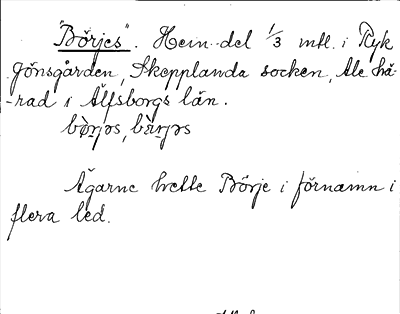 "Börjes". Hem.del 1/3 mtl. i Ryk
Jönsgården, Skepplanda socken, Ale hä-
-rad i Älfsborgs län.
Ägarne hette Börje i förnamn i
flera led.